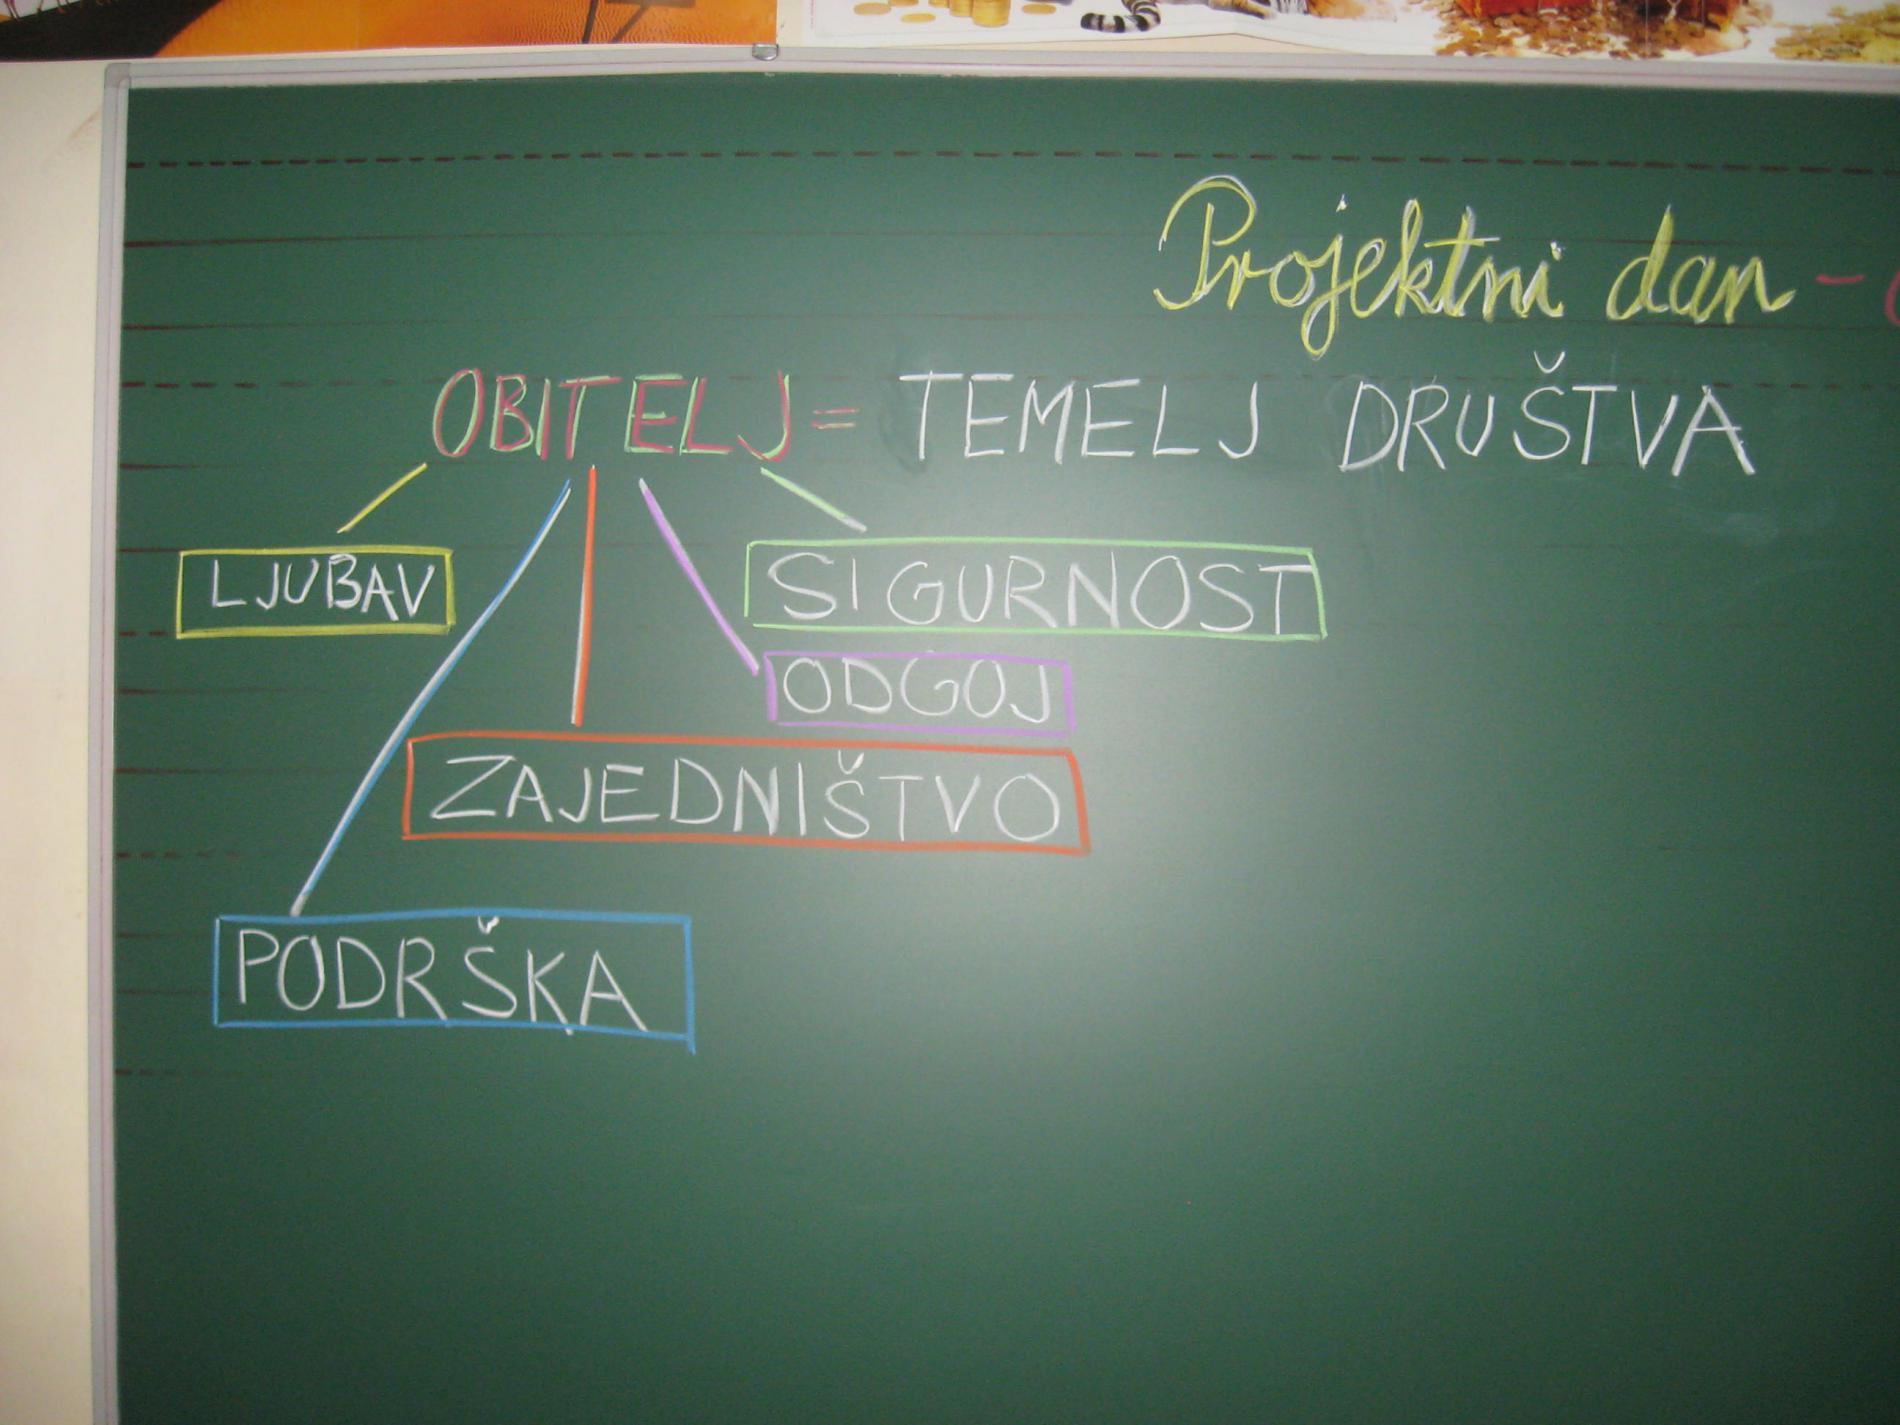 Projektni dan -
OBITELJ = TEMELJ DRUŠTVA
LJUBAV
SIGURNOST
ODGOJ
ZAJEDNIŠTVO
PODRŠKA